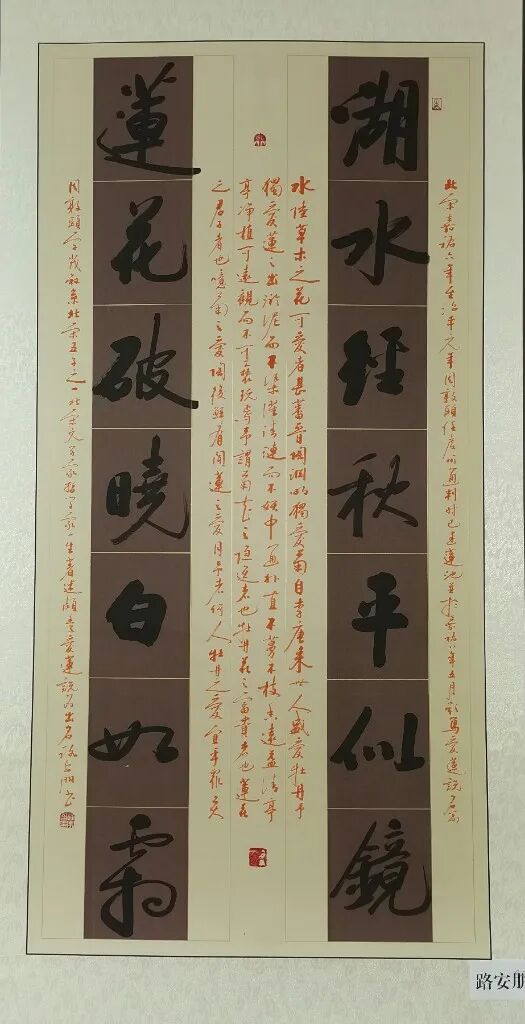 此宋嘉祐六年至治平元年周敦頤任虔州通判時已建蓮池並於嘉祐八年五月寫愛蓮說名篇
湖水經秋平似鏡
水陸草木之花可愛者甚蕃晉陶淵明獨愛菊自李唐來世人盛愛牡丹予
獨愛蓮之出淤泥而不染濯清漣而不妖中通外直不蔓不枝香遠益清亭
亭净植可遠觀而不可褻玩焉予謂菊花之隱逸者也牡丹花之富貴者也蓮花
之君子者也噫菊之愛陶後鮮有聞蓮之愛同予者何人牡丹之愛宜乎眾矣
蓮花破曉白如霜
周敦頤字茂叔系北宋五子之一北宋家哲學家一生著述頗豐愛蓮說為出名路安朋書
路安朋